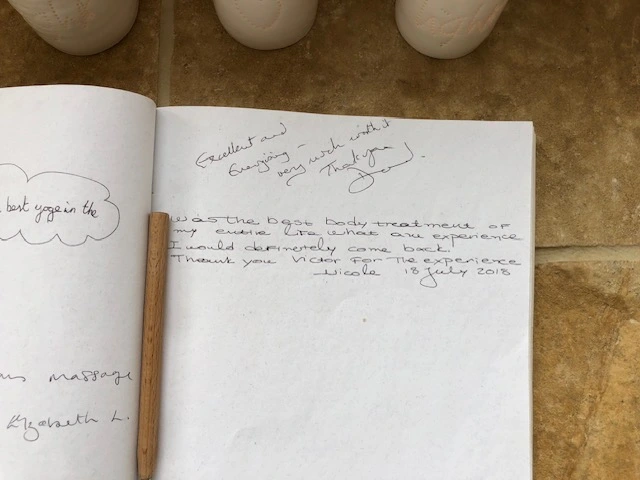 best yoga in the
massage
Elizabeth L.
Excellent and
Energising -
very much worth it
Thank you
was the best body treatment of
my entire life what an experience
I would definetely come back.
Thank you Victor for the experience
Nicole 18 July 2018